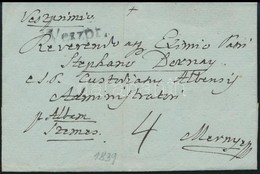 Veszprimio
Weszpr.
Reverendo ay Eximio Pari
Stephano Dornay
e.s.s. Custodiary Albensis
Administratori
p Albam
Szemes
4
Mernye
1831